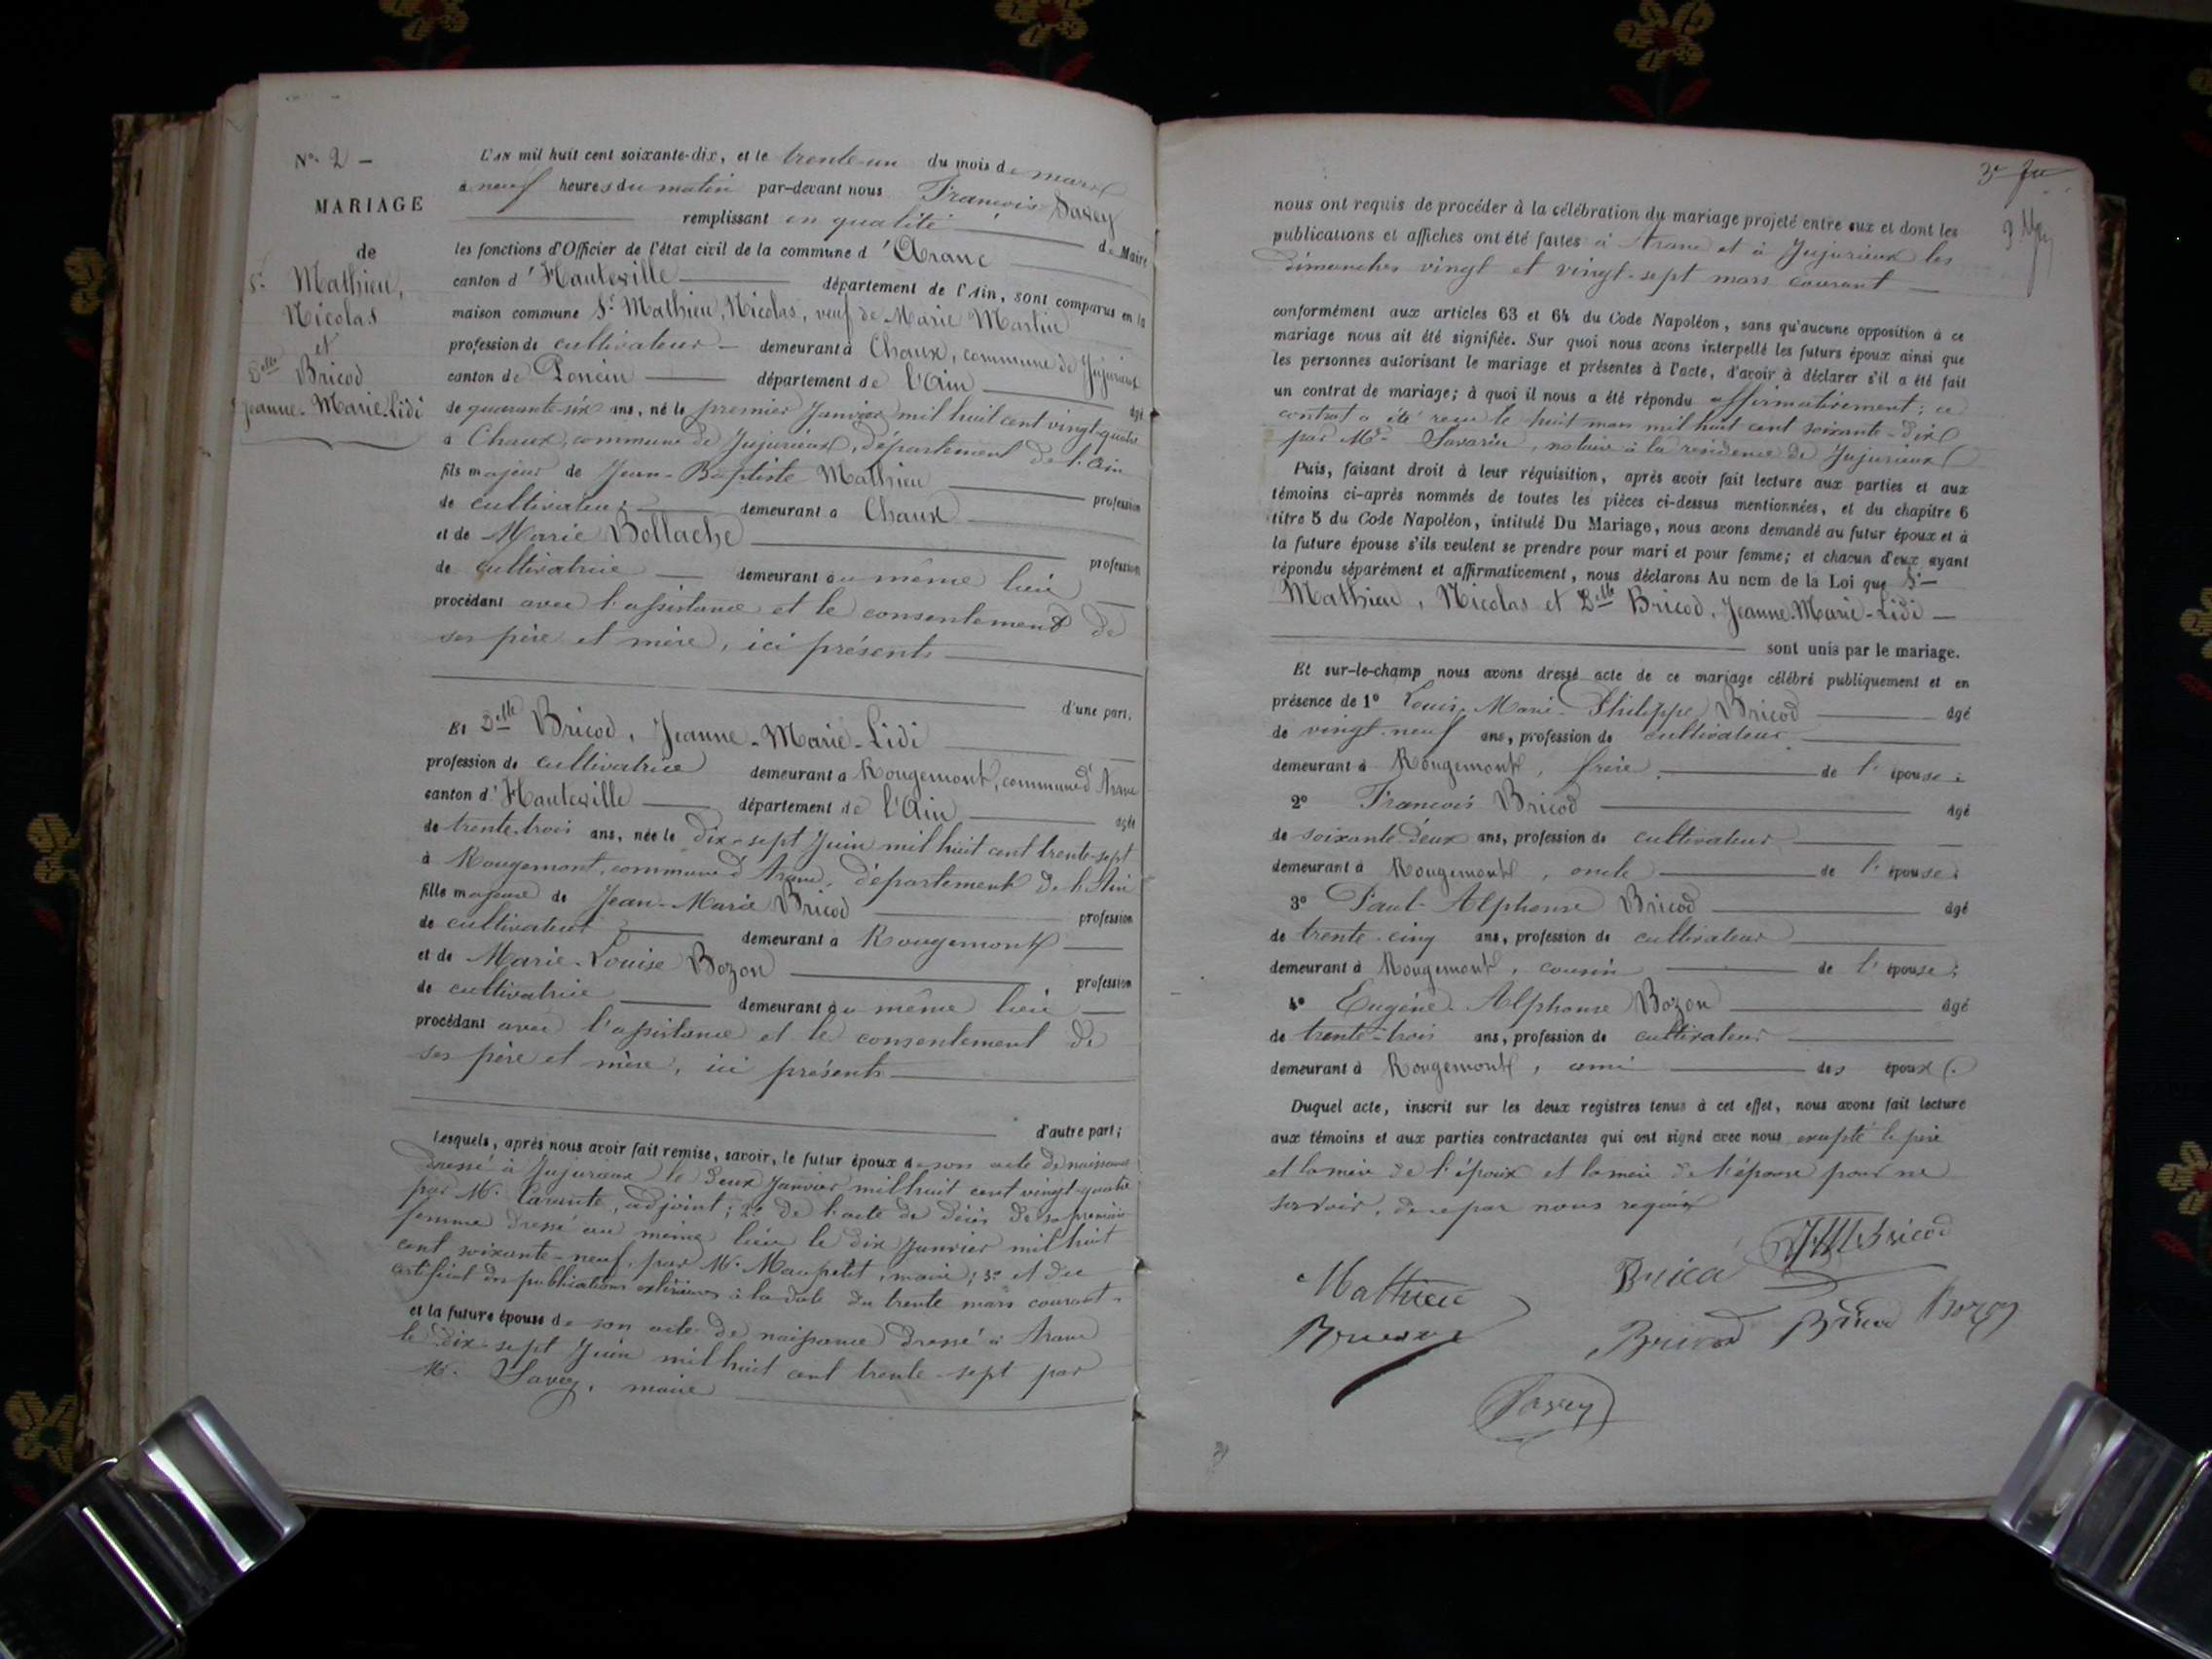 N° 2 -
MARIAGE
de
Sr Mathieu,
Nicolas
et
Delle Bricod
Jeanne-Marie-Lidi
L'AN mil huit cent soixante-dix, et le trente-un du mois de mars
à neuf heures du matin par-devant nous François Savey
remplissant en qualité de Maire
les fonctions d'Officier de l'état civil de la commune d'Aranc
canton d'Hauteville département de l'Ain, sont comparus en la
maison commune Sr Mathieu, Nicolas, veuf de Marie Martin
profession de cultivateur - demeurant à Chaux, commune de Jujurieux
canton de Poncin département de l'Ain âgé
de quarante-six ans, né le premier Janvier mil huit cent vingt-quatre
à Chaux, commune de Jujurieux, département de l'Ain
fils majeur de Jean-Baptiste Mathieu profession
de cultivateur demeurant à Chaux
et de Marie Bollache profession
de cultivatrice demeurant au même lieu
procédant avec l'assistance et le consentement de
ses père et mère, ici présents
d'une part.
Et Delle Bricod, Jeanne-Marie-Lidi
profession de cultivatrice demeurant à Rougemont, commune d'Aranc
canton d'Hauteville département de l'Ain âgée
de trente-trois ans, née le dix-sept Juin mil huit cent trente-sept
à Rougemont, commune d'Aranc, département de l'Ain
fille majeure de Jean-Marie Bricod profession
de cultivateur demeurant à Rougemont
et de Marie-Louise Bozon profession
de cultivatrice demeurant au même lieu
procédant avec l'assistance et le consentement de
ses père et mère, ici présents
d'autre part;
Lesquels, après nous avoir fait remise, savoir, le futur époux de son acte de naissance
dressé à Jujurieux le deux Janvier mil huit cent vingt-quatre
par M. adjoint; 2° de l'acte de décès de sa première
femme dressé au même lieu le dix Janvier mil huit
cent soixante-neuf, par M. Maupetit, maire; 3° et du
certificat des publications extérieures à la date du trente mars courant.
et la future épouse de son acte de naissance dressé à Aranc
le dix-sept Juin mil huit cent trente-sept par
M. Savey, maire
3e
nous ont requis de procéder à la célébration du mariage projeté entre eux et dont les
publications et affiches ont été faites à Aranc et à Jujurieux les
dimanches vingt et vingt-sept mars courant
conformément aux articles 63 et 64 du Code Napoléon, sans qu'aucune opposition à ce
mariage nous ait été signifiée. Sur quoi nous avons interpellé les futurs époux ainsi que
les personnes autorisant le mariage et présentes à l'acte, d'avoir à déclarer s'il a été fait
un contrat de mariage; à quoi il nous a été répondu affirmativement; ce
contrat a été reçu le huit mars mil huit cent soixante-dix
par Me Savarin, notaire à la résidence de Jujurieux
Puis, faisant droit à leur réquisition, après avoir fait lecture aux parties et aux
témoins ci-après nommés de toutes les pièces ci-dessus mentionnées, et du chapitre 6
titre 5 du Code Napoléon, intitulé Du Mariage, nous avons demandé au futur époux et à
la future épouse s'ils veulent se prendre pour mari et pour femme; et chacun d'eux ayant
répondu séparément et affirmativement, nous déclarons Au nom de la Loi que Sr
Mathieu, Nicolas et Delle Bricod, Jeanne-Marie-Lidi
sont unis par le mariage.
Et sur-le-champ nous avons dressé acte de ce mariage célébré publiquement et en
présence de 1° Louis-Marie-Philippe Bricod âgé
de vingt-neuf ans, profession de cultivateur
demeurant à Rougemont, frère de l'épouse;
2° François Bricod âgé
de soixante-deux ans, profession de cultivateur
demeurant à Rougemont, oncle de l'épouse;
3° Paul-Alphonse Bricod âgé
de trente-cinq ans, profession de cultivateur
demeurant à Rougemont, cousin de l'épouse;
4° Eugène-Alphonse Bozon âgé
de trente-trois ans, profession de cultivateur
demeurant à Rougemont, ami des époux.
Duquel acte, inscrit sur les deux registres tenus à cet effet, nous avons fait lecture
aux témoins et aux parties contractantes qui ont signé avec nous excepté le père
et la mère de l'époux et la mère de l'épouse pour ne
savoir, de ce par nous requis
Mathieu Bricod
Bricod Bricod Bozon
Savey